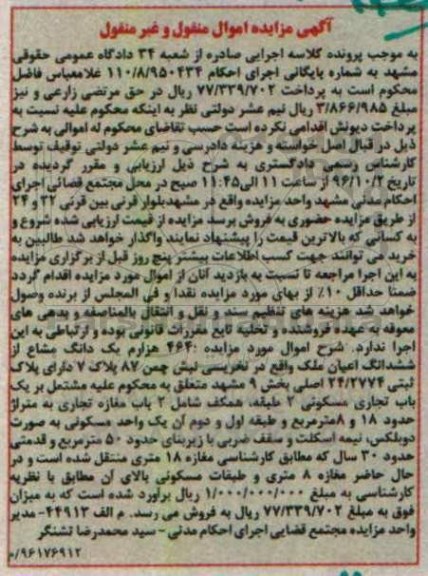 آگهی مزایده اموال منقول و غیر منقول
به موجب پرونده کلاسه اجرایی صادره از شعبه ۳۴ دادگاه عمومی حقوقی
مشهد به شماره بایگانی اجرای احکام ۱۱۰/۸/۹۵۰۴۳۴ غلامعباس فاضل
محکوم است به پرداخت ۷۷/۳۳۹/۷۰۲ ریال در حق مرتضی زارعی و نیز
مبلغ ۳/۸۶۶/۹۸۵ ریال نیم عشر دولتی نظر به اینکه محکوم علیه نسبت به
پرداخت دیونش اقدامی نکرده است حسب تقاضای محکوم له اموالی به شرح
ذیل در قبال اصل خواسته و هزینه دادرسی و نیم عشر دولتی توقیف توسط
کارشناس رسمی دادگستری به شرح ذیل ارزیابی و مقرر گردیده در
تاریخ ۹۶/۱۰/۲ از ساعت ۱۱ الی۱۱:۴۵ صبح در محل مجتمع قضائی اجرای
احکام مدنی مشهد واحد مزایده واقع در مشهدبلوار قرنی بین قرنی ۳۲ و ۲۴
از طریق مزایده حضوری به فروش برسد مزایده از قیمت ارزیابی شده شروع و
به کسانی که بالاترین قیمت را پیشنهاد نمایند واگذار خواهد شد طالبین به
خرید می توانند جهت کسب اطلاعات بیشتر پنج روز قبل از برگزاری مزایده
به این اجرا مراجعه تا نسبت به بازدید آنان از اموال مورد مزایده اقدام گردد
ضمنا حداقل ۱۰٪ از بهای مورد مزایده نقدا و فی المجلس از برنده وصول
خواهد شد هزینه های تنظیم سند و نقل و انتقال بالمناصفه و بدهی های
معوقه به عهده فروشنده و تخلیه تابع مقررات قانونی بوده و ارتباطی به این
اجرا ندارد. شرح اموال مورد مزایده :۴۶۴ هزارم یک دانگ مشاع از
ششدانگ اعیان ملک واقع در نخریسی نبش چمن ۸۷ پلاک ۷ دارای پلاک
ثبتی ۲۴/۲۷۷۴ اصلی بخش ۹ مشهد متعلق به محکوم علیه مشتمل بر یک
باب تجاری مسکونی ۲ طبقه، همکف شامل ۲ باب مغازه تجاری به متراژ
حدود ۱۸ و ۸مترمربع و طبقه اول و دوم آن یک واحد مسکونی به صورت
دوبلکس، نیمه اسکلت و سقف ضربی با زیربنای حدود ۵۰ مترمربع و قدمتی
حدود ۳۰ سال که مطابق کارشناسی مغازه ۱۸ متری منتقل شده است و در
حال حاضر مغازه ۸ متری و طبقات مسکونی بالای آن مطابق با نظریه
کارشناسی به مبلغ ۱/۰۰۰/۰۰۰/۰۰۰ ریال برآورد شده است که به میزان
فوق به مبلغ ۷۷/۳۳۹/۷۰۲ ریال به فروش می رسد. م الف ۴۴۹۱۳- مدیر
واحد مزایده مجتمع قضایی اجرای احکام مدنی - سید محمدرضا تشنگر
۹۶۱۷۶۹۱۲/م